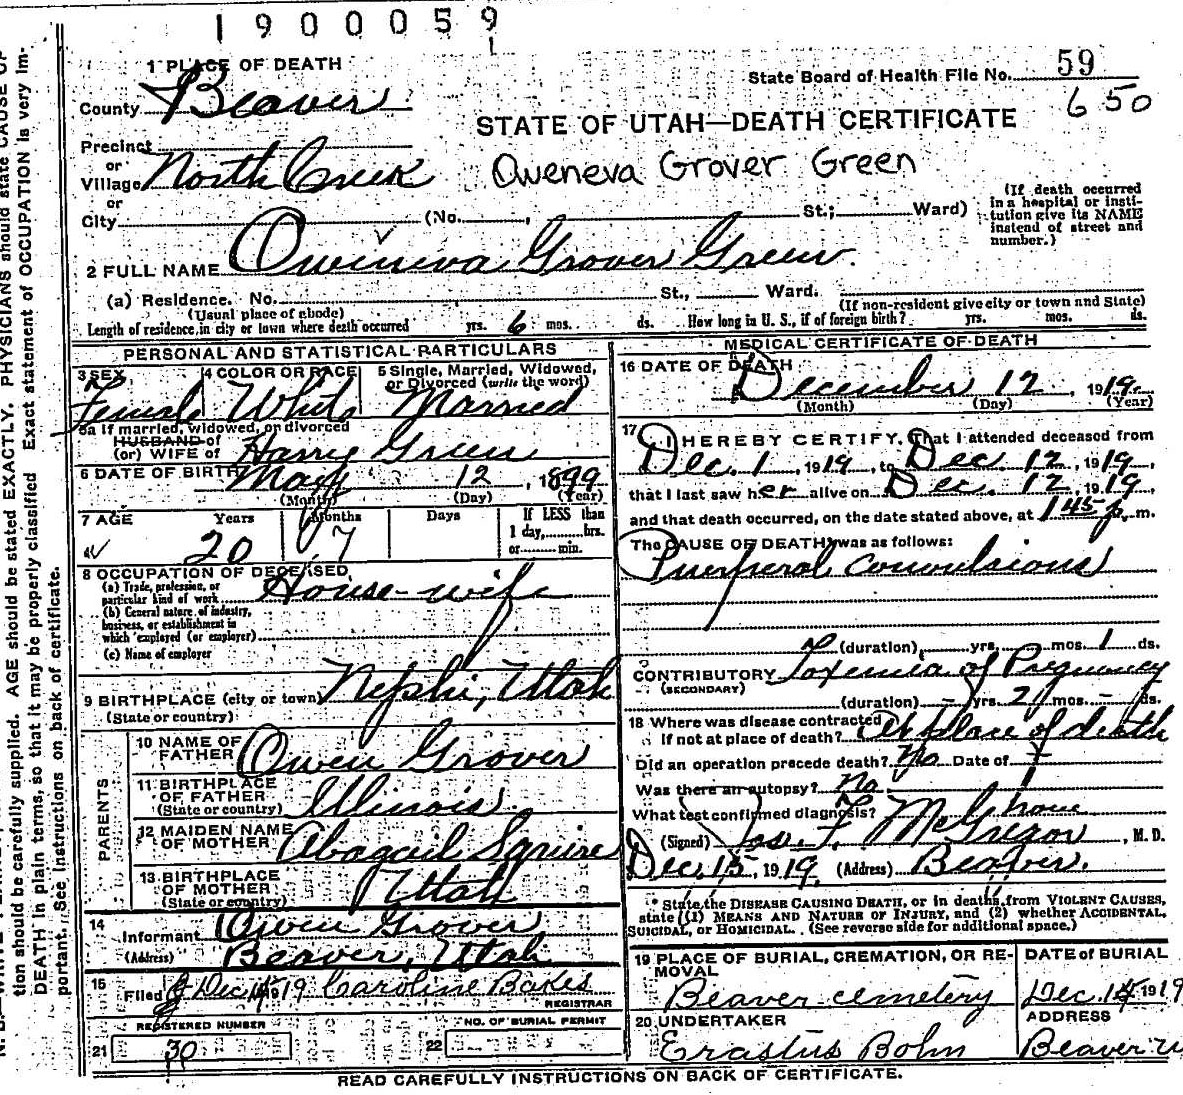 1900059
1 PLACE OF DEATH
State Board of Health File No. 59
County Beaver
650
STATE OF UTAH—DEATH CERTIFICATE
Precinct
or
Village North Creek
Oweneva Grover Green
or
City (No. , St.; Ward)
(If death occurred in a hospital or institution give its NAME instead of street and number.)
2 FULL NAME Oweneva Grover Green
(a) Residence. No. St., Ward.
(Usual place of abode) (If non-resident give city or town and State)
Length of residence in city or town where death occurred yrs. 6 mos. ds. How long in U. S., if of foreign birth? yrs. mos. ds.
PERSONAL AND STATISTICAL PARTICULARS
3 SEX 4 COLOR OR RACE 5 Single, Married, Widowed, or Divorced (write the word)
Female White Married
5a If married, widowed, or divorced
HUSBAND of
(or) WIFE of Harry Green
6 DATE OF BIRTH May 12, 1899
(Month) (Day) (Year)
7 AGE Years Months Days If LESS than
1 day, hrs.
or min.
20 7
8 OCCUPATION OF DECEASED
(a) Trade, profession, or particular kind of work House-wife
(b) General nature of industry, business, or establishment in which employed (or employer)
(c) Name of employer
9 BIRTHPLACE (city or town) Nephi, Utah
(State or country)
PARENTS
10 NAME OF FATHER Owen Grover
11 BIRTHPLACE OF FATHER Illinois
(State or country)
12 MAIDEN NAME OF MOTHER Abagail Squire
13 BIRTHPLACE OF MOTHER Utah
(State or country)
14
Informant Owen Grover
(Address) Beaver, Utah
15
Filed Dec 14 1919 Caroline Bakes
REGISTRAR
REGISTERED NUMBER NO. OF BURIAL PERMIT
21 30 22
MEDICAL CERTIFICATE OF DEATH
16 DATE OF DEATH
December 12, 1919
(Month) (Day) (Year)
17
I HEREBY CERTIFY, That I attended deceased from
Dec. 1, 1919, to Dec. 12, 1919,
that I last saw her alive on Dec. 12, 1919,
and that death occurred, on the date stated above, at 1 45 p. m.
The CAUSE OF DEATH was as follows:
Puerperal convulsions
(duration) yrs. mos. 1 ds.
CONTRIBUTORY Toxemia of Pregnancy
(SECONDARY)
(duration) - yrs. 2 mos. - ds.
18 Where was disease contracted
If not at place of death? At place of death
Did an operation precede death? No Date of
Was there an autopsy? No.
What test confirmed diagnosis?
(Signed) Jos. F. McGregor, M. D.
Dec. 15, 1919. (Address) Beaver.
* State the DISEASE CAUSING DEATH, or in deaths from VIOLENT CAUSES,
state (1) MEANS AND NATURE OF INJURY, and (2) whether ACCIDENTAL,
SUICIDAL, or HOMICIDAL. (See reverse side for additional space.)
19 PLACE OF BURIAL, CREMATION, OR REMOVAL DATE of BURIAL
Beaver cemetery Dec. 14 1919
20 UNDERTAKER ADDRESS
Erastus Bohn Beaver
READ CAREFULLY INSTRUCTIONS ON BACK OF CERTIFICATE.
tion should be carefully supplied. AGE should be stated EXACTLY. PHYSICIANS should state CAUSE OF
DEATH in plain terms, so that it may be properly classified Exact statement of OCCUPATION is very im-
portant. See instructions on back of certificate.